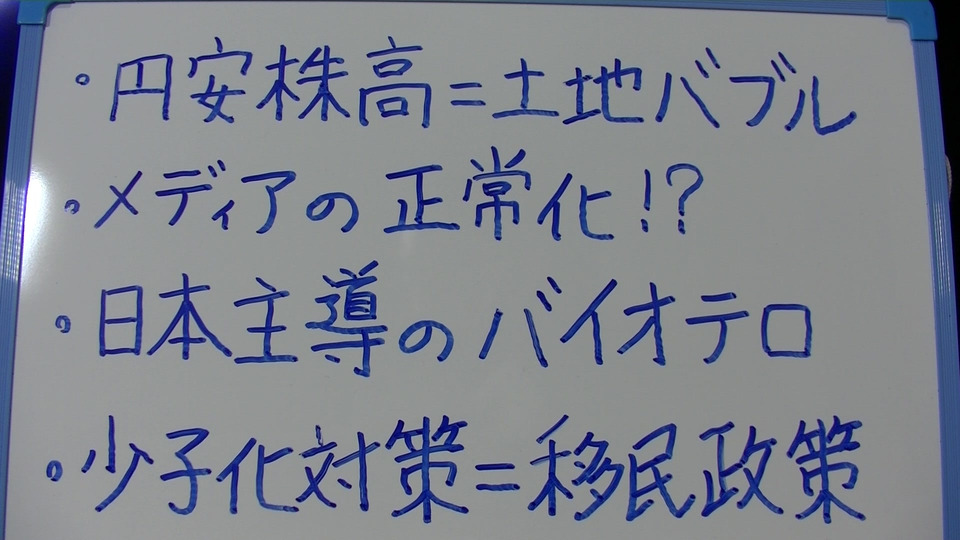 ・円安株高=土地バブル
・メディアの正常化!?
・日本主導のバイオテロ
・少子化対策=移民政策